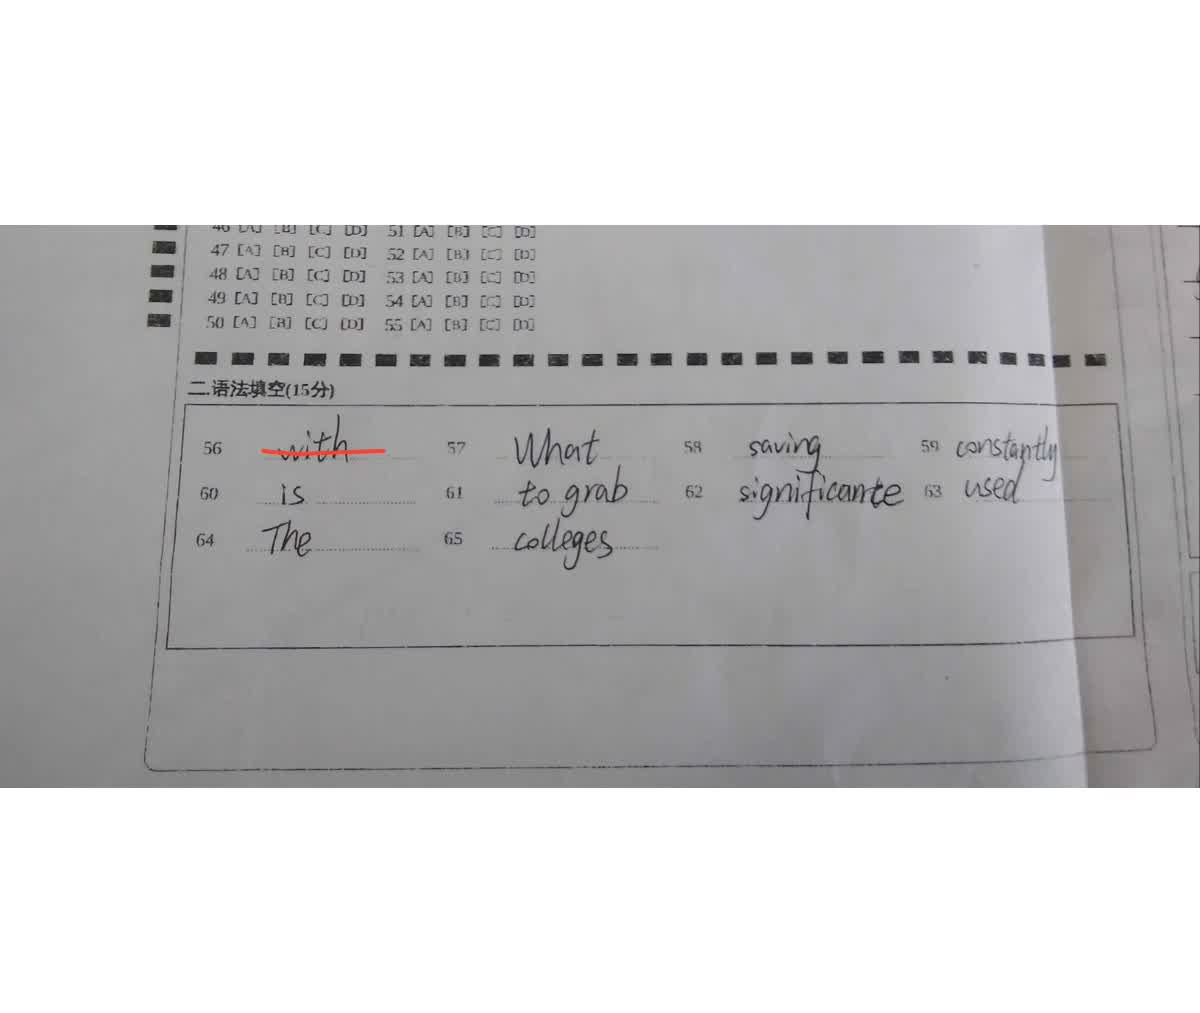 46 [A] [B] [C] [D] 51 [A] [B] [C] [D]
47 [A] [B] [C] [D] 52 [A] [B] [C] [D]
48 [A] [B] [C] [D] 53 [A] [B] [C] [D]
49 [A] [B] [C] [D] 54 [A] [B] [C] [D]
50 [A] [B] [C] [D] 55 [A] [B] [C] [D]
二.语法填空(15分)
56 with 57 What 58 saving 59 constantly
60 is 61 to grab 62 significante 63 used
64 The 65 colleges